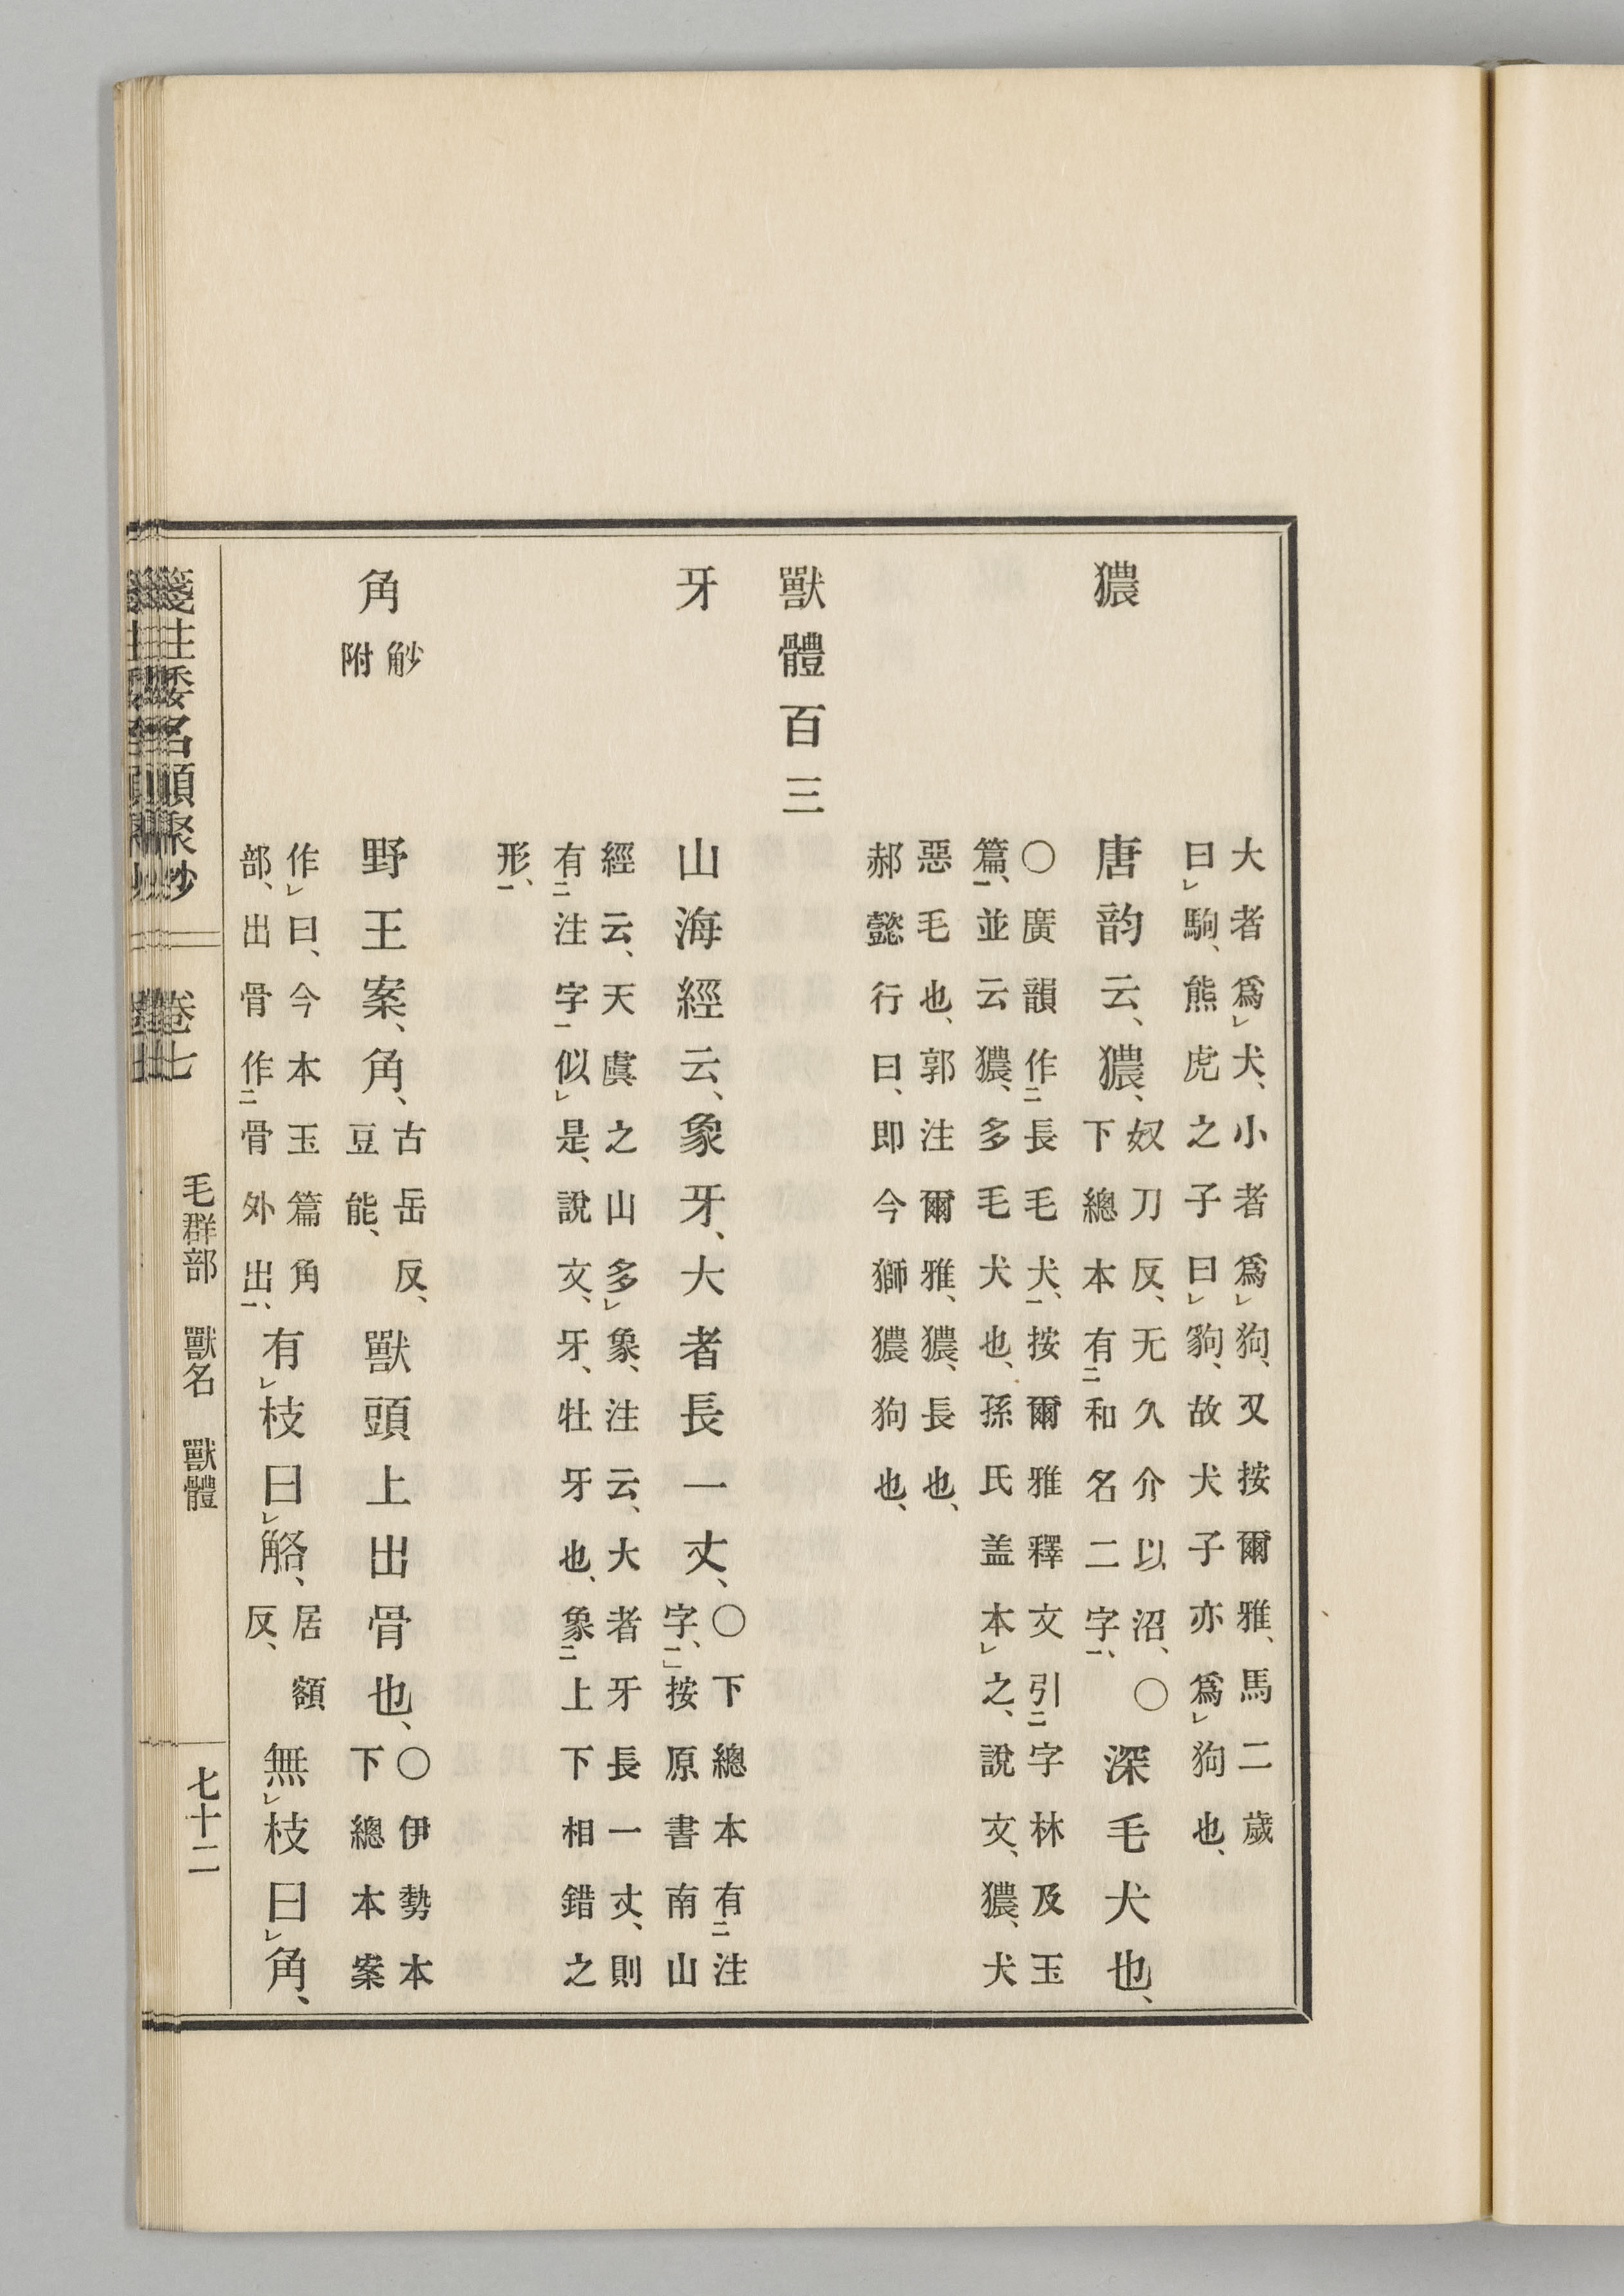 大者爲レ犬、小者爲レ狗、又按爾雅、馬二歲
曰レ駒、熊虎之子曰レ豿、故犬子亦爲レ狗也、
獳
唐韵云、獳、
奴刀反、无久介以沼、〇
下總本有二和名二字一、
深毛犬也、
〇廣韻作二長毛犬一、按爾雅釋文引二字林及玉
篇一、並云獳、多毛犬也、孫氏盖本レ之、說文、獳、犬
惡毛也、郭注爾雅、獳、長也、
郝懿行曰、即今獅獳狗也、
獸體百三
牙
山海經云、象牙、大者長一丈、
〇下總本有二注
字一、按原書南山
經云、天虞之山多レ象、注云、大者牙長一丈、則
有二注字一似レ是、說文、牙、牡牙也、象二上下相錯之
形一、
角
觘
附
野王案、角、
古岳反、
豆能、
獸頭上出骨也、
〇伊勢本
下總本案
作レ曰、今本玉篇角
部、出骨作二骨外出一、
有レ枝曰レ觡、
居額
反、
無レ枝曰レ角、
箋注倭名類聚抄 卷七 毛群部 獸名 獸體 七十二